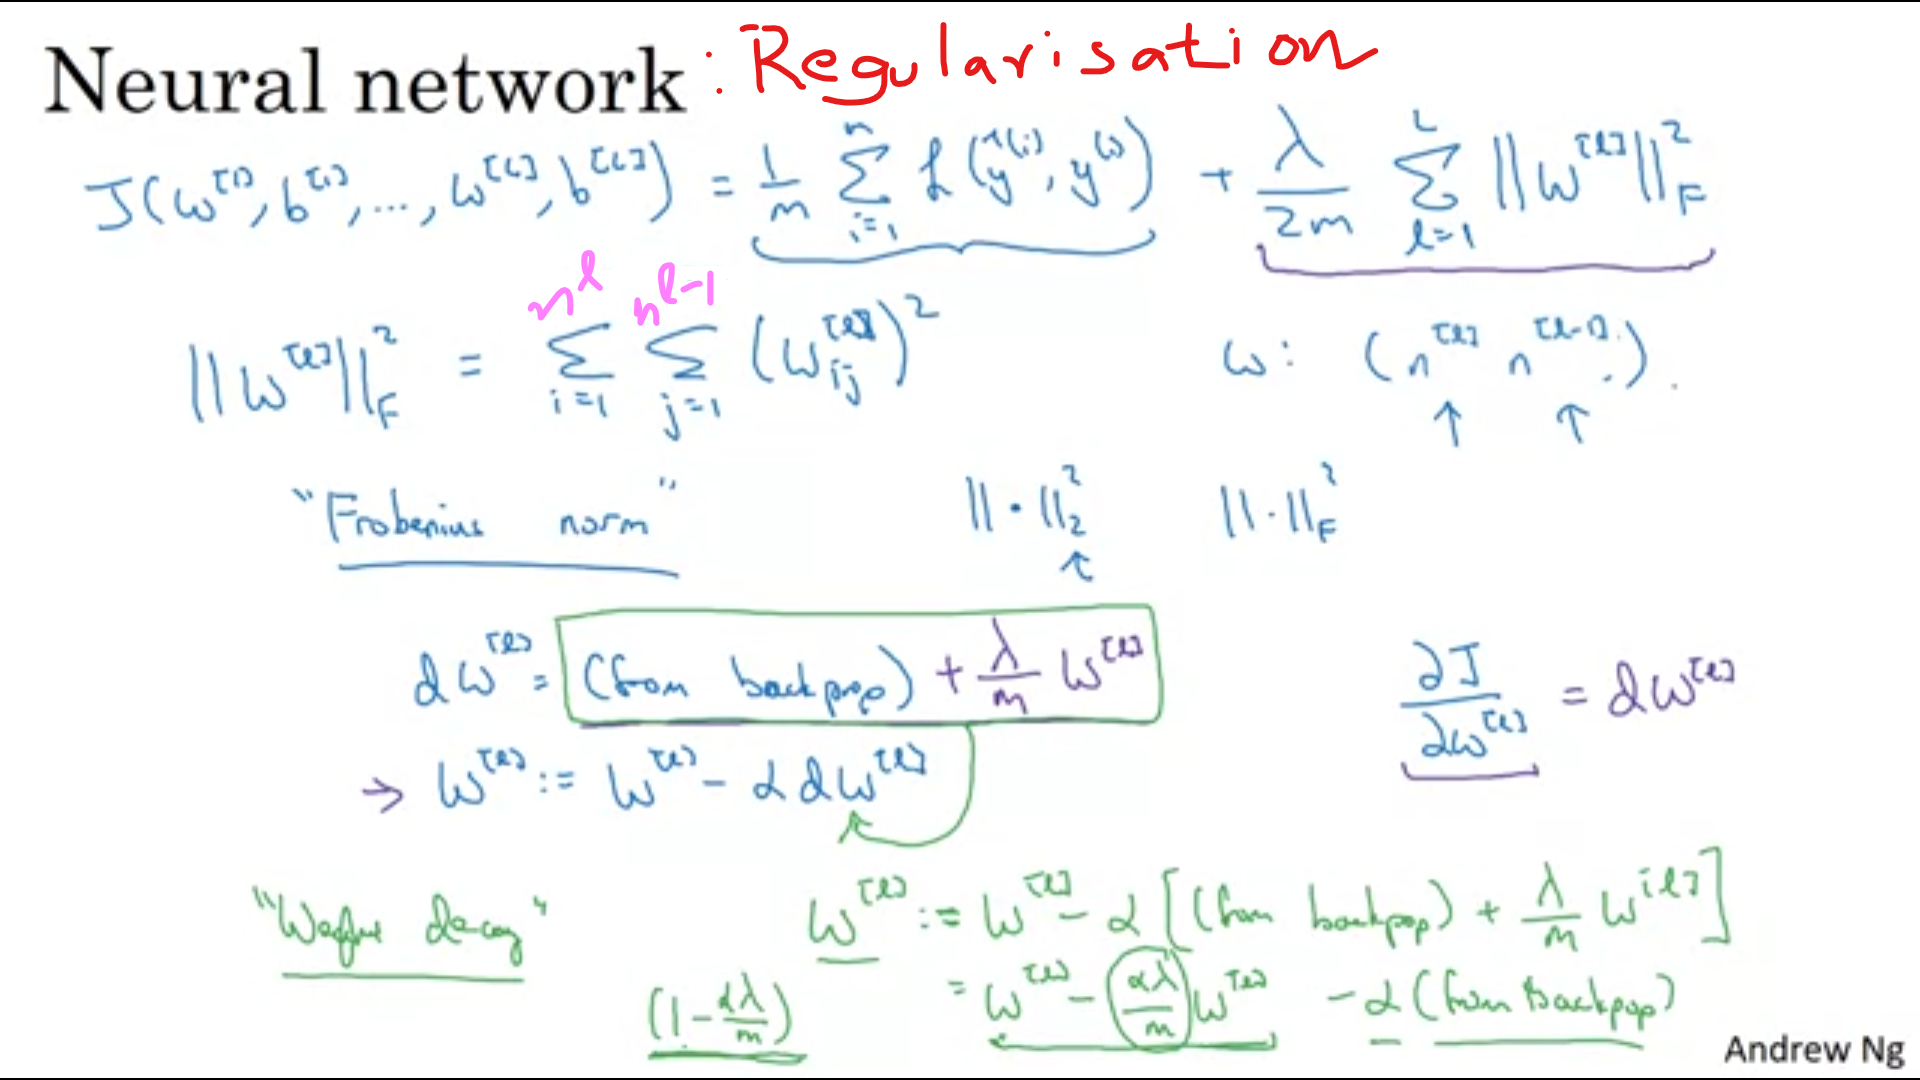 Neural network : Regularisation
J(w^[1], b^[1], ..., w^[L], b^[L]) = 1/m ∑_{i=1}^{n} L(ŷ^(i), y^(i)) + λ/2m ∑_{l=1}^{L} ||w^[l]||_F^2
n^l n^{l-1}
||w^[l]||_F^2 = ∑_{i=1} ∑_{j=1} (w_ij^[l])^2 w: (n^[l] n^[l-1]).
"Frobenius norm" ||·||_2^2 ||·||_F^2
dw^[l] = (from backprop) + λ/m w^[l] ∂J/∂w^[l] = dw^[l]
→ w^[l] := w^[l] - α dw^[l]
"Weight decay" w^[l] := w^[l] - α[(from backpop) + λ/m w^[l]]
(1 - αλ/m) = w^[l] - αλ/m w^[l] - α(from backpop)
Andrew Ng